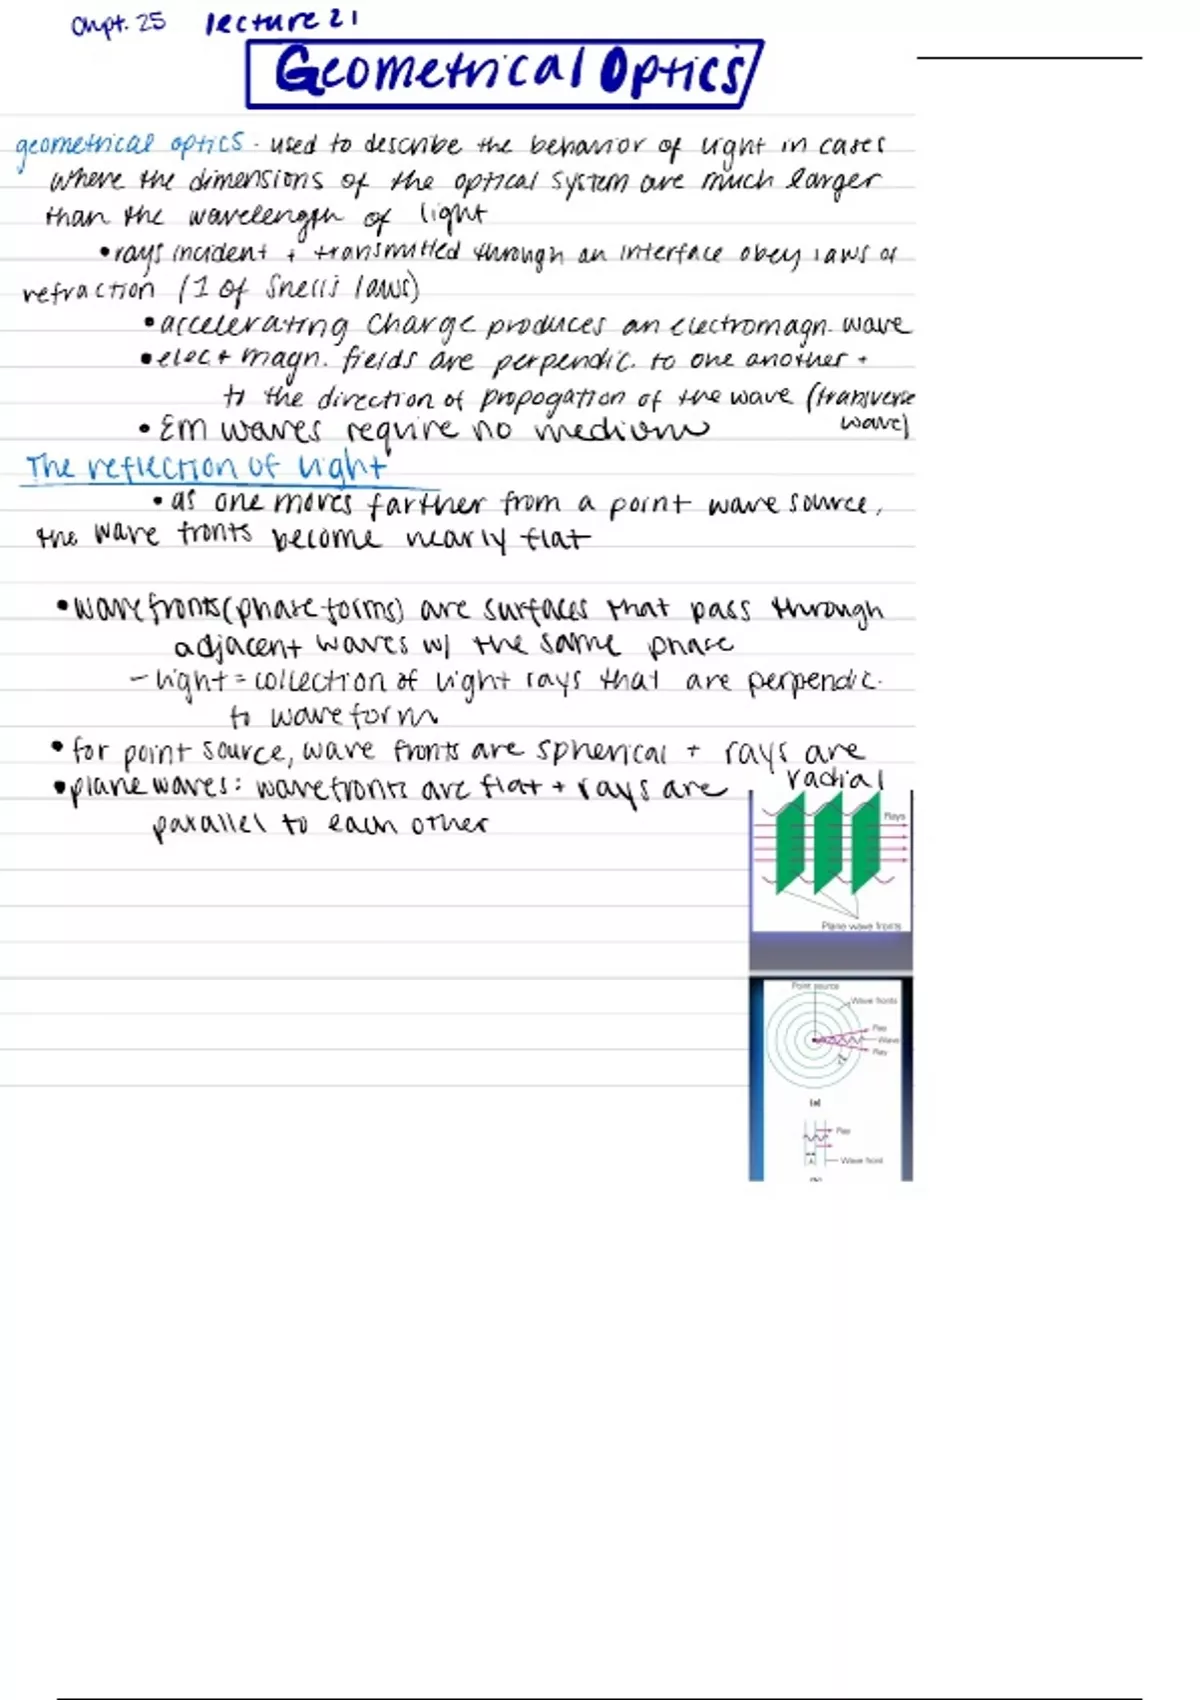 Chpt. 25 lecture 21
Geometrical Optics
geometrical optics - used to describe the behavior of light in cases
where the dimensions of the optical system are much larger
than the wavelength of light
• rays incident + transmitted through an interface obey laws of
refraction (1 of Snell's laws)
• accelerating charge produces an electromagn. wave
• elec + magn. fields are perpendic. to one another +
to the direction of propogation of the wave (transverse
wave)
• EM waves require no medium
The reflection of light
• as one moves farther from a point wave source,
the wave fronts become nearly flat
• wavefronts (phase forms) are surfaces that pass through
adjacent waves w/ the same phase
- light = collection of light rays that are perpendic.
to waveform
• for point source, wave fronts are spherical + rays are
radial
• plane waves: wavefronts are flat + rays are
parallel to each other
Rays
Plane wave fronts
Point source
Wave fronts
Ray
Wave
Ray
(a)
Ray
Wave front